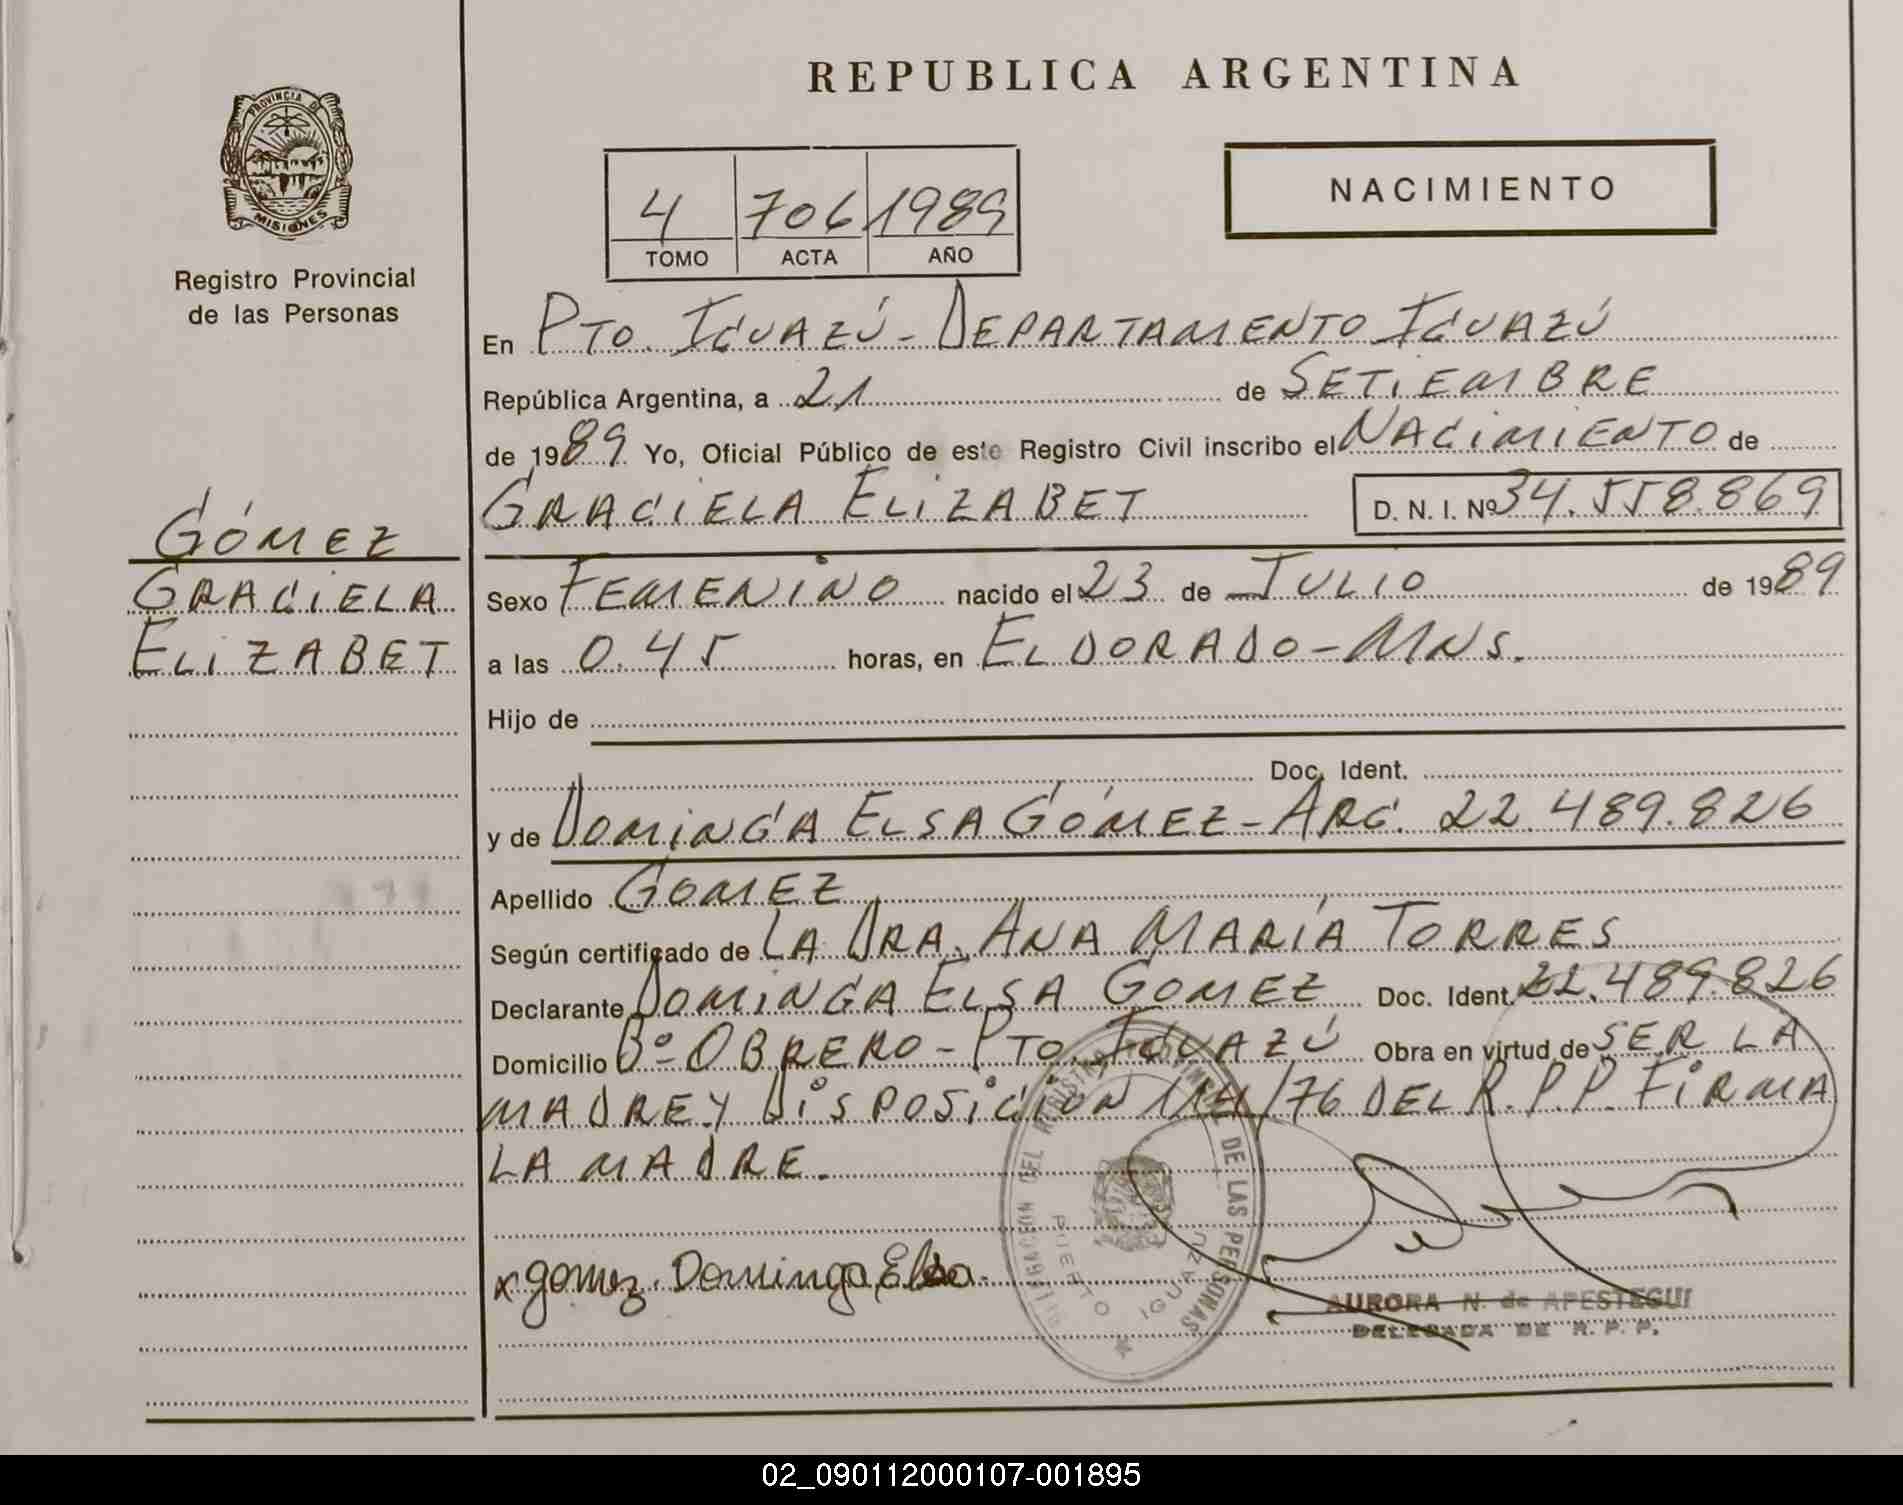 REPUBLICA ARGENTINA
PROVINCIA DE
MISIONES
Registro Provincial
de las Personas
4 706 1989
TOMO ACTA AÑO
NACIMIENTO
En PTO. IGUAZÚ - DEPARTAMENTO IGUAZÚ
República Argentina, a 21 de SETIEMBRE
de 1989 Yo, Oficial Público de este Registro Civil inscribo el NACIMIENTO de
GRACIELA ELIZABET D. N. I. Nº 34.558.869
GÓMEZ
GRACIELA
ELIZABET
Sexo FEMENINO nacido el 23 de JULIO de 1989
a las 0.45 horas, en ELDORADO - MNS.
Hijo de
Doc. Ident.
y de DOMINGA ELSA GÓMEZ - ARG. 22.489.826
Apellido GOMEZ
Según certificado de LA DRA. ANA MARÍA TORRES
Declarante DOMINGA ELSA GOMEZ Doc. Ident. 22.489.826
Domicilio Bº OBRERO - PTO. IGUAZÚ Obra en virtud de SER LA
MADRE Y DISPOSICION 114/76 DEL R.P.P. FIRMA
LA MADRE.
x gomez Dominga Elsa.
DELEGACION DEL REGISTRO PROVINCIAL DE LAS PERSONAS
PUERTO IGUAZU
AURORA N. de APESTEGUI
DELEGADA DE R. P. P.
02_090112000107-001895